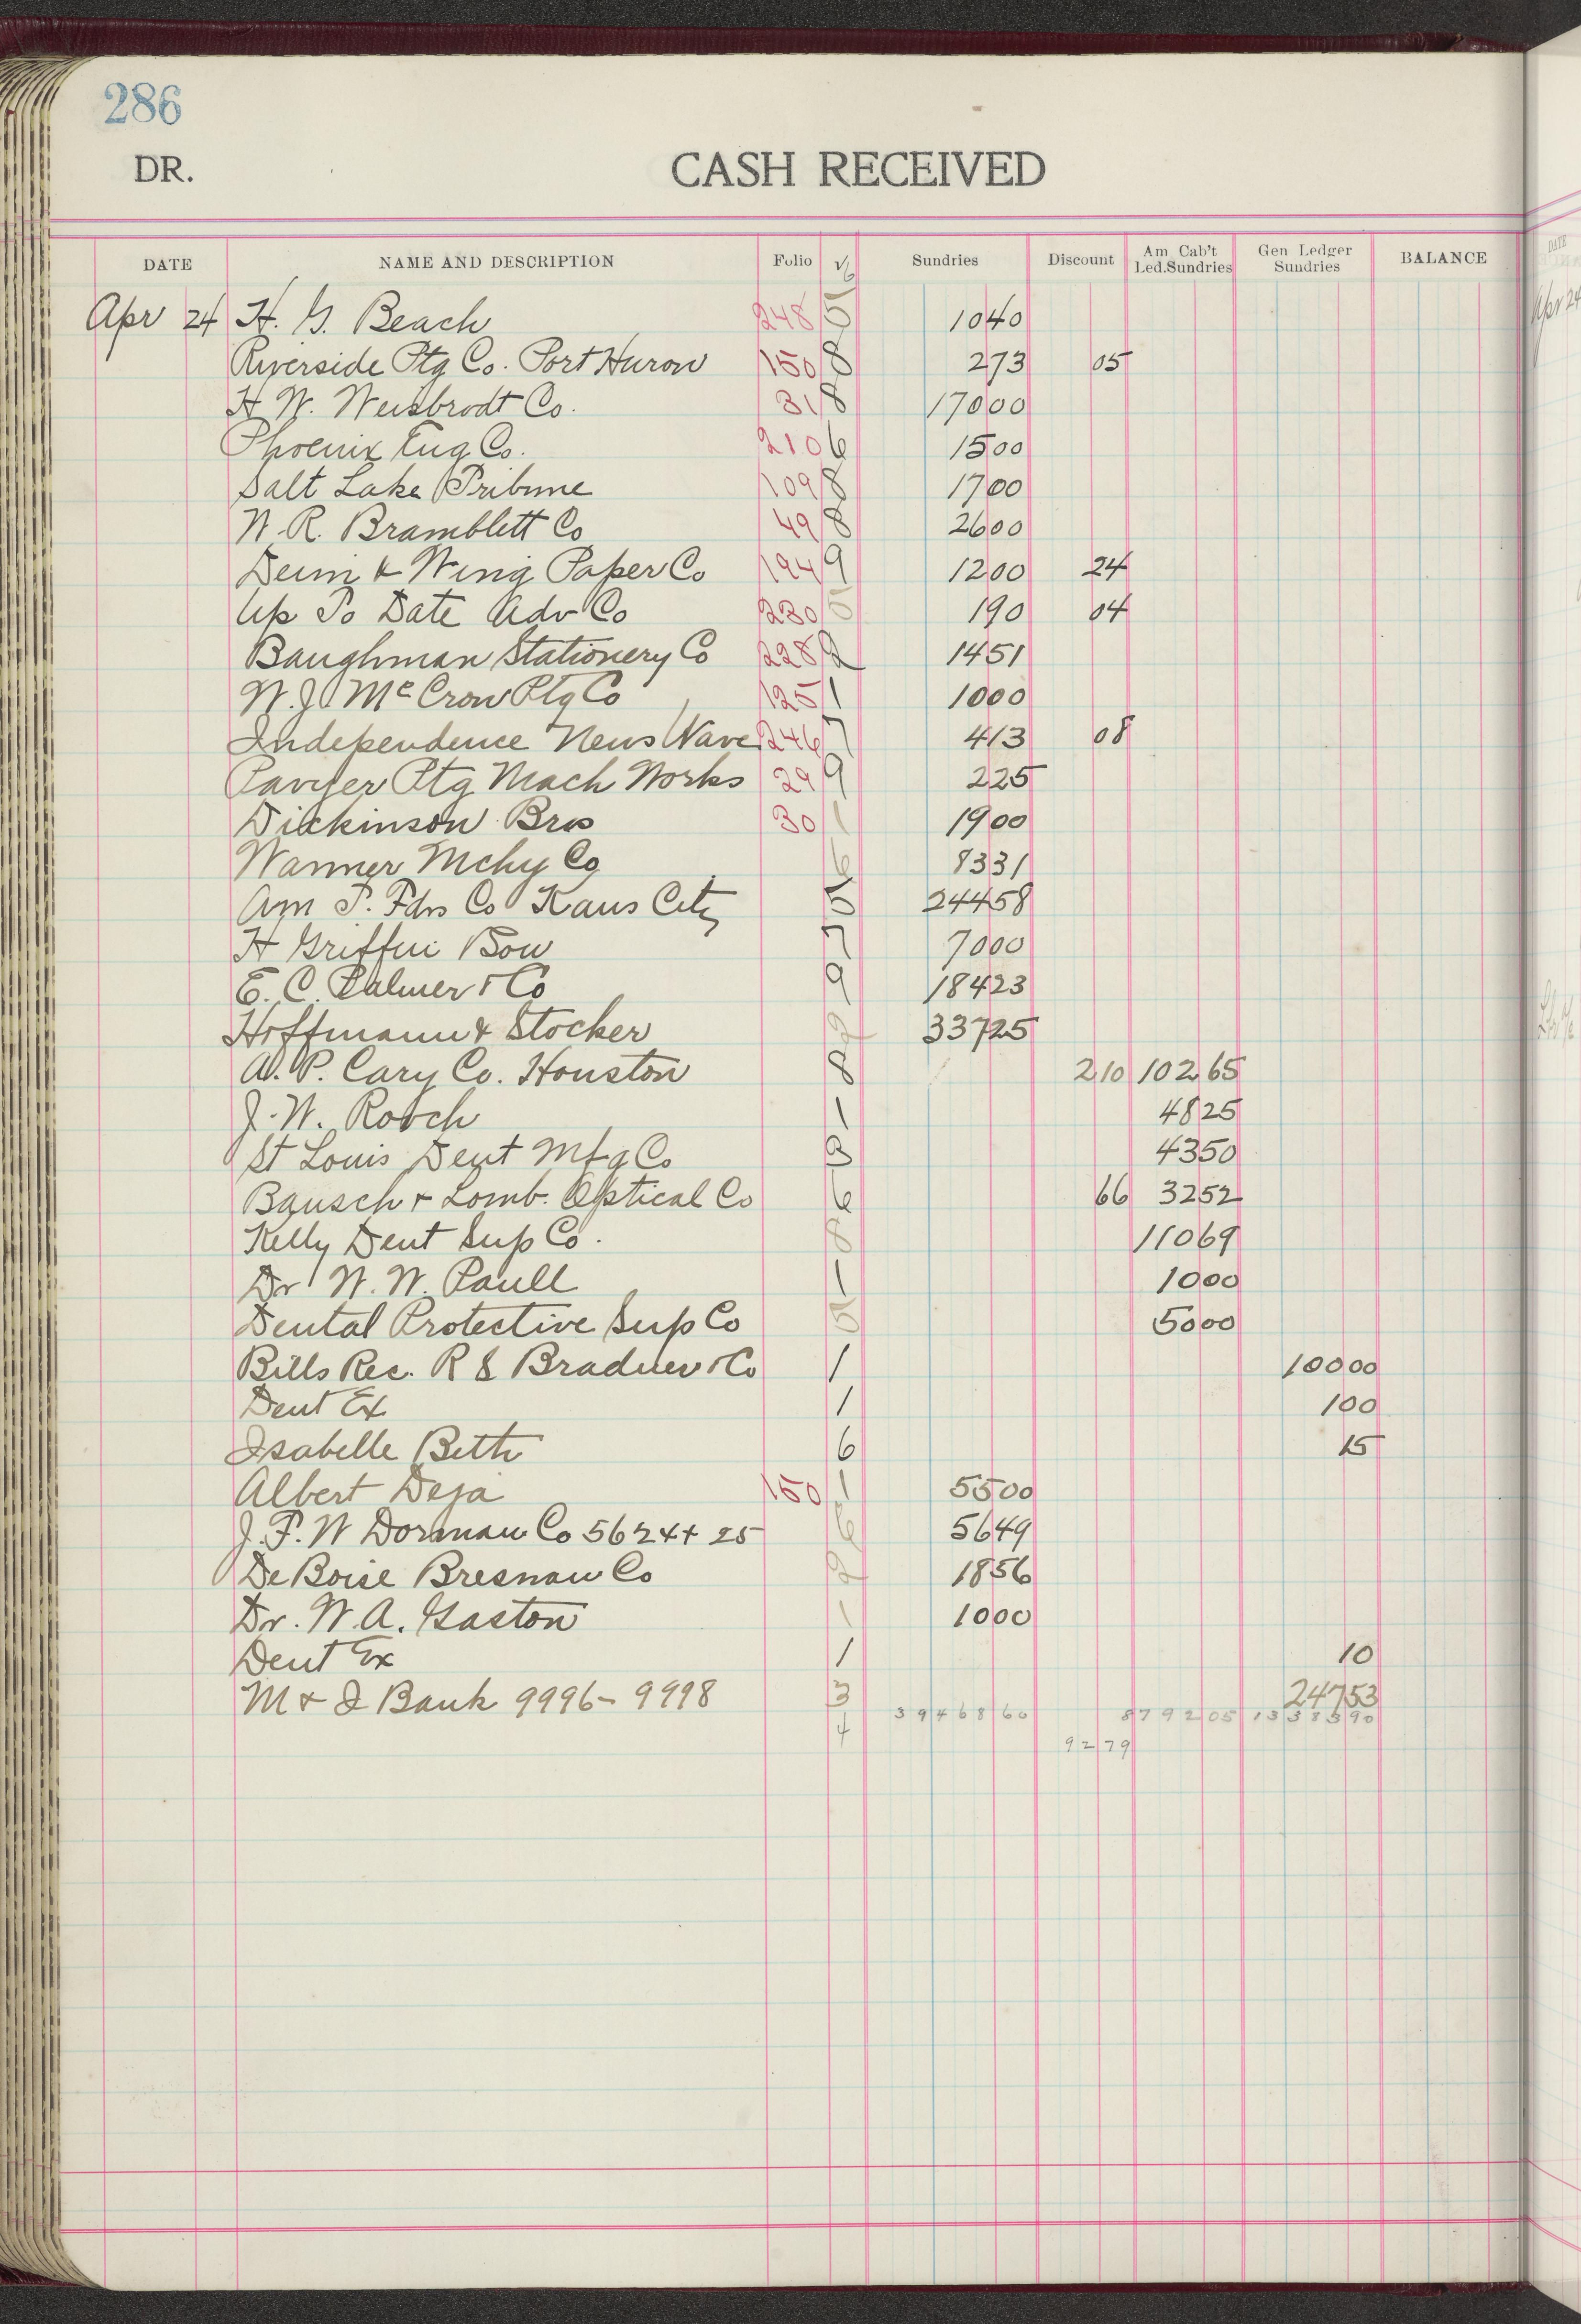 286
DR.
CASH RECEIVED
DATE NAME AND DESCRIPTION Folio Sundries Discount Am Cab't Led.Sundries Gen Ledger Sundries BALANCE
Apr 24 H. G. Beach 248 5 1040
Riverside Ptg Co. Port Huron 150 8 273 05
H W. Weisbrodt Co. 31 8 17000
Phoenix Eng Co. 210 6 1500
Salt Lake Tribune 109 8 1700
W. R. Bramblett Co 49 8 2600
Deim & Wing Paper Co 194 9 1200 24
Up To Date Adv Co 230 5 190 04
Baughman Stationery Co 228 2 1451
W. J. McCrow Ptg Co 125 1 1000
Independence News Wave 246 7 413 08
Pavyer Ptg Mach Works 29 9 225
Dickinson Bros 30 1 1900
Wanner Mchy Co 6 8331
Am T. Fdrs Co Kans City 5 24458
H Griffin & Son 7 7000
E. C. Palmer & Co 9 18423
Hoffmann & Stocker 2 33725
A. P. Cary Co. Houston 8 210 10265
J. W. Roach 1 4825
St Louis Dent Mfg Co 4350
Bausch & Lomb Optical Co 6 66 3252
Kelly Dent Sup Co. 8 11069
Dr W. W. Paull 1 1000
Dental Protective Sup Co 5 5000
Bills Rec. R S Bradner & Co 1 10000
Dent Ex 1 100
Isabelle Beth 6 15
Albert Deja 150 1 5500
J. F. W Dorman Co 5624 + 25 6 5649
DeBoise Bresnan Co 2 1856
Dr. W. A. Gaston 1 1000
Dent Ex 1 10
M & I Bank 9996 - 9998 3 24753
4 3946860 879205 1338390
9279